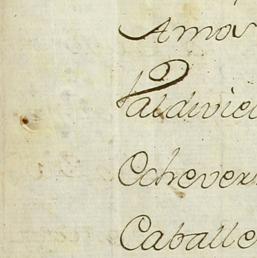 Amor
Valdivie
Echever
Caballe